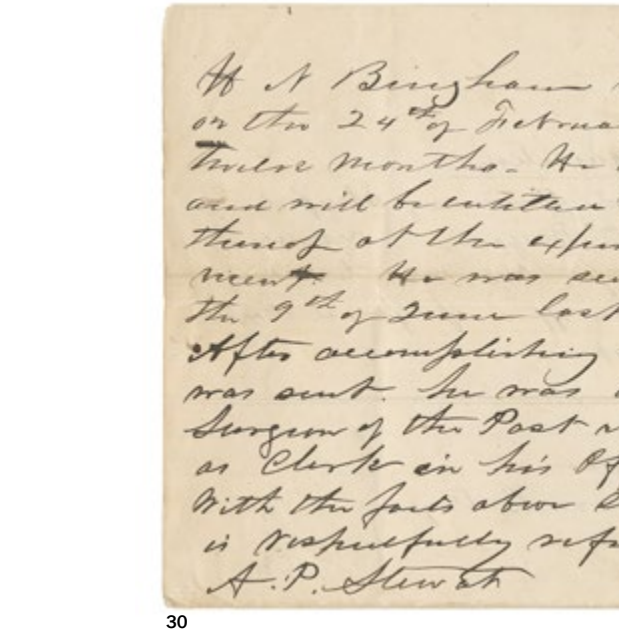 H N Bingham
on the 24th of Februa
twelve months. He
and will be entitled
thereof at the expir
ment. He was sen
the 9th of June last
After accomplishing
was sent. he was
Surgeon of the Post
as Clerk in his Of
With the facts above
is respectfully refe
A. P. Stewart
30